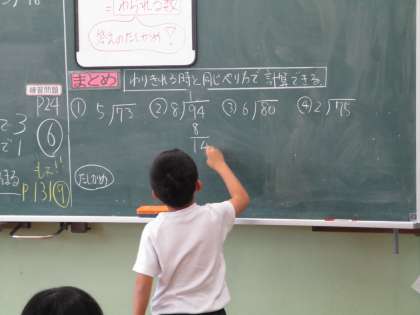 =わられる数
答えのたしかめ!
まとめ わりきれる時と同じやり方で計算できる。
練習問題
P24
⑥
① 5)73 ② 8)94 ③ 6)80 ④ 2)75
1
8
14
もっと!!
P131⑨
たしかめ